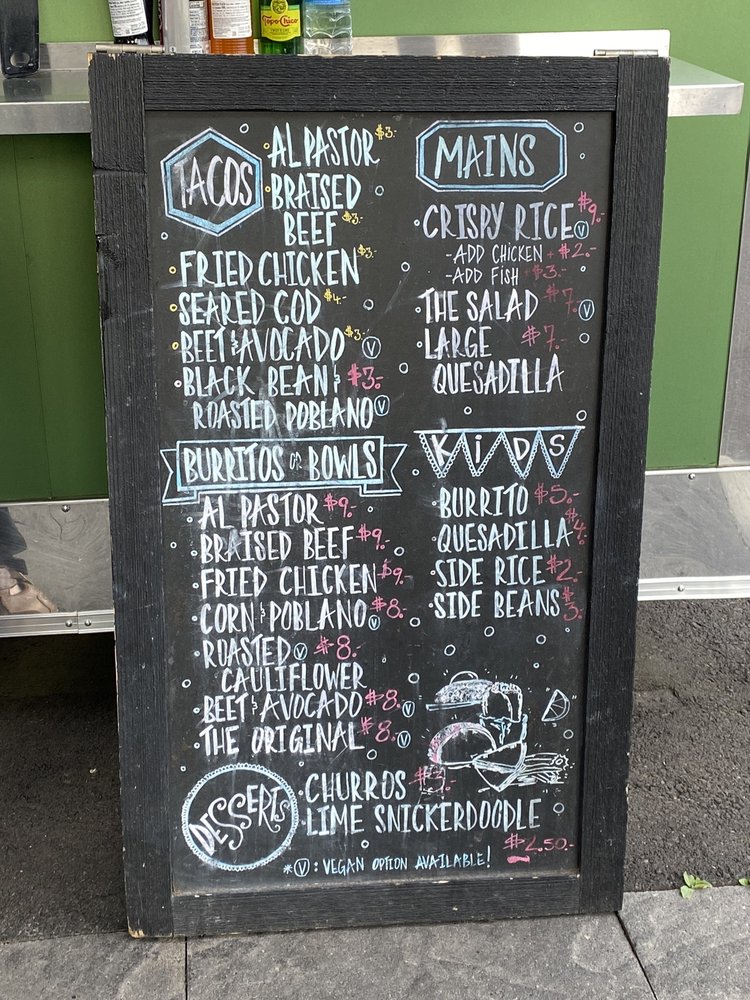 Topo Chico
TACOS
AL PASTOR $3.-
BRAISED
BEEF $3.-
FRIED CHICKEN $3.-
SEARED COD $4.-
BEET & AVOCADO $3.- Ⓥ
BLACK BEAN & $3.-
ROASTED POBLANO Ⓥ
BURRITOS or BOWLS
AL PASTOR $9.-
BRAISED BEEF $9.-
FRIED CHICKEN $9.
CORN & POBLANO $8.- Ⓥ
ROASTED Ⓥ $8.-
CAULIFLOWER
BEET & AVOCADO $8.- Ⓥ
THE ORIGINAL $8.- Ⓥ
MAINS
CRISPY RICE $9.- Ⓥ
-ADD CHICKEN + $2.-
-ADD FISH + $3.-
THE SALAD $7.- Ⓥ
LARGE $7.-
QUESADILLA
KiDS
BURRITO $5.-
QUESADILLA $4.-
SIDE RICE $2.-
SIDE BEANS $3.-
DESSERTS
CHURROS $3.-
LIME SNICKERDOODLE
$2.50.-
*Ⓥ: VEGAN OPTION AVAILABLE!